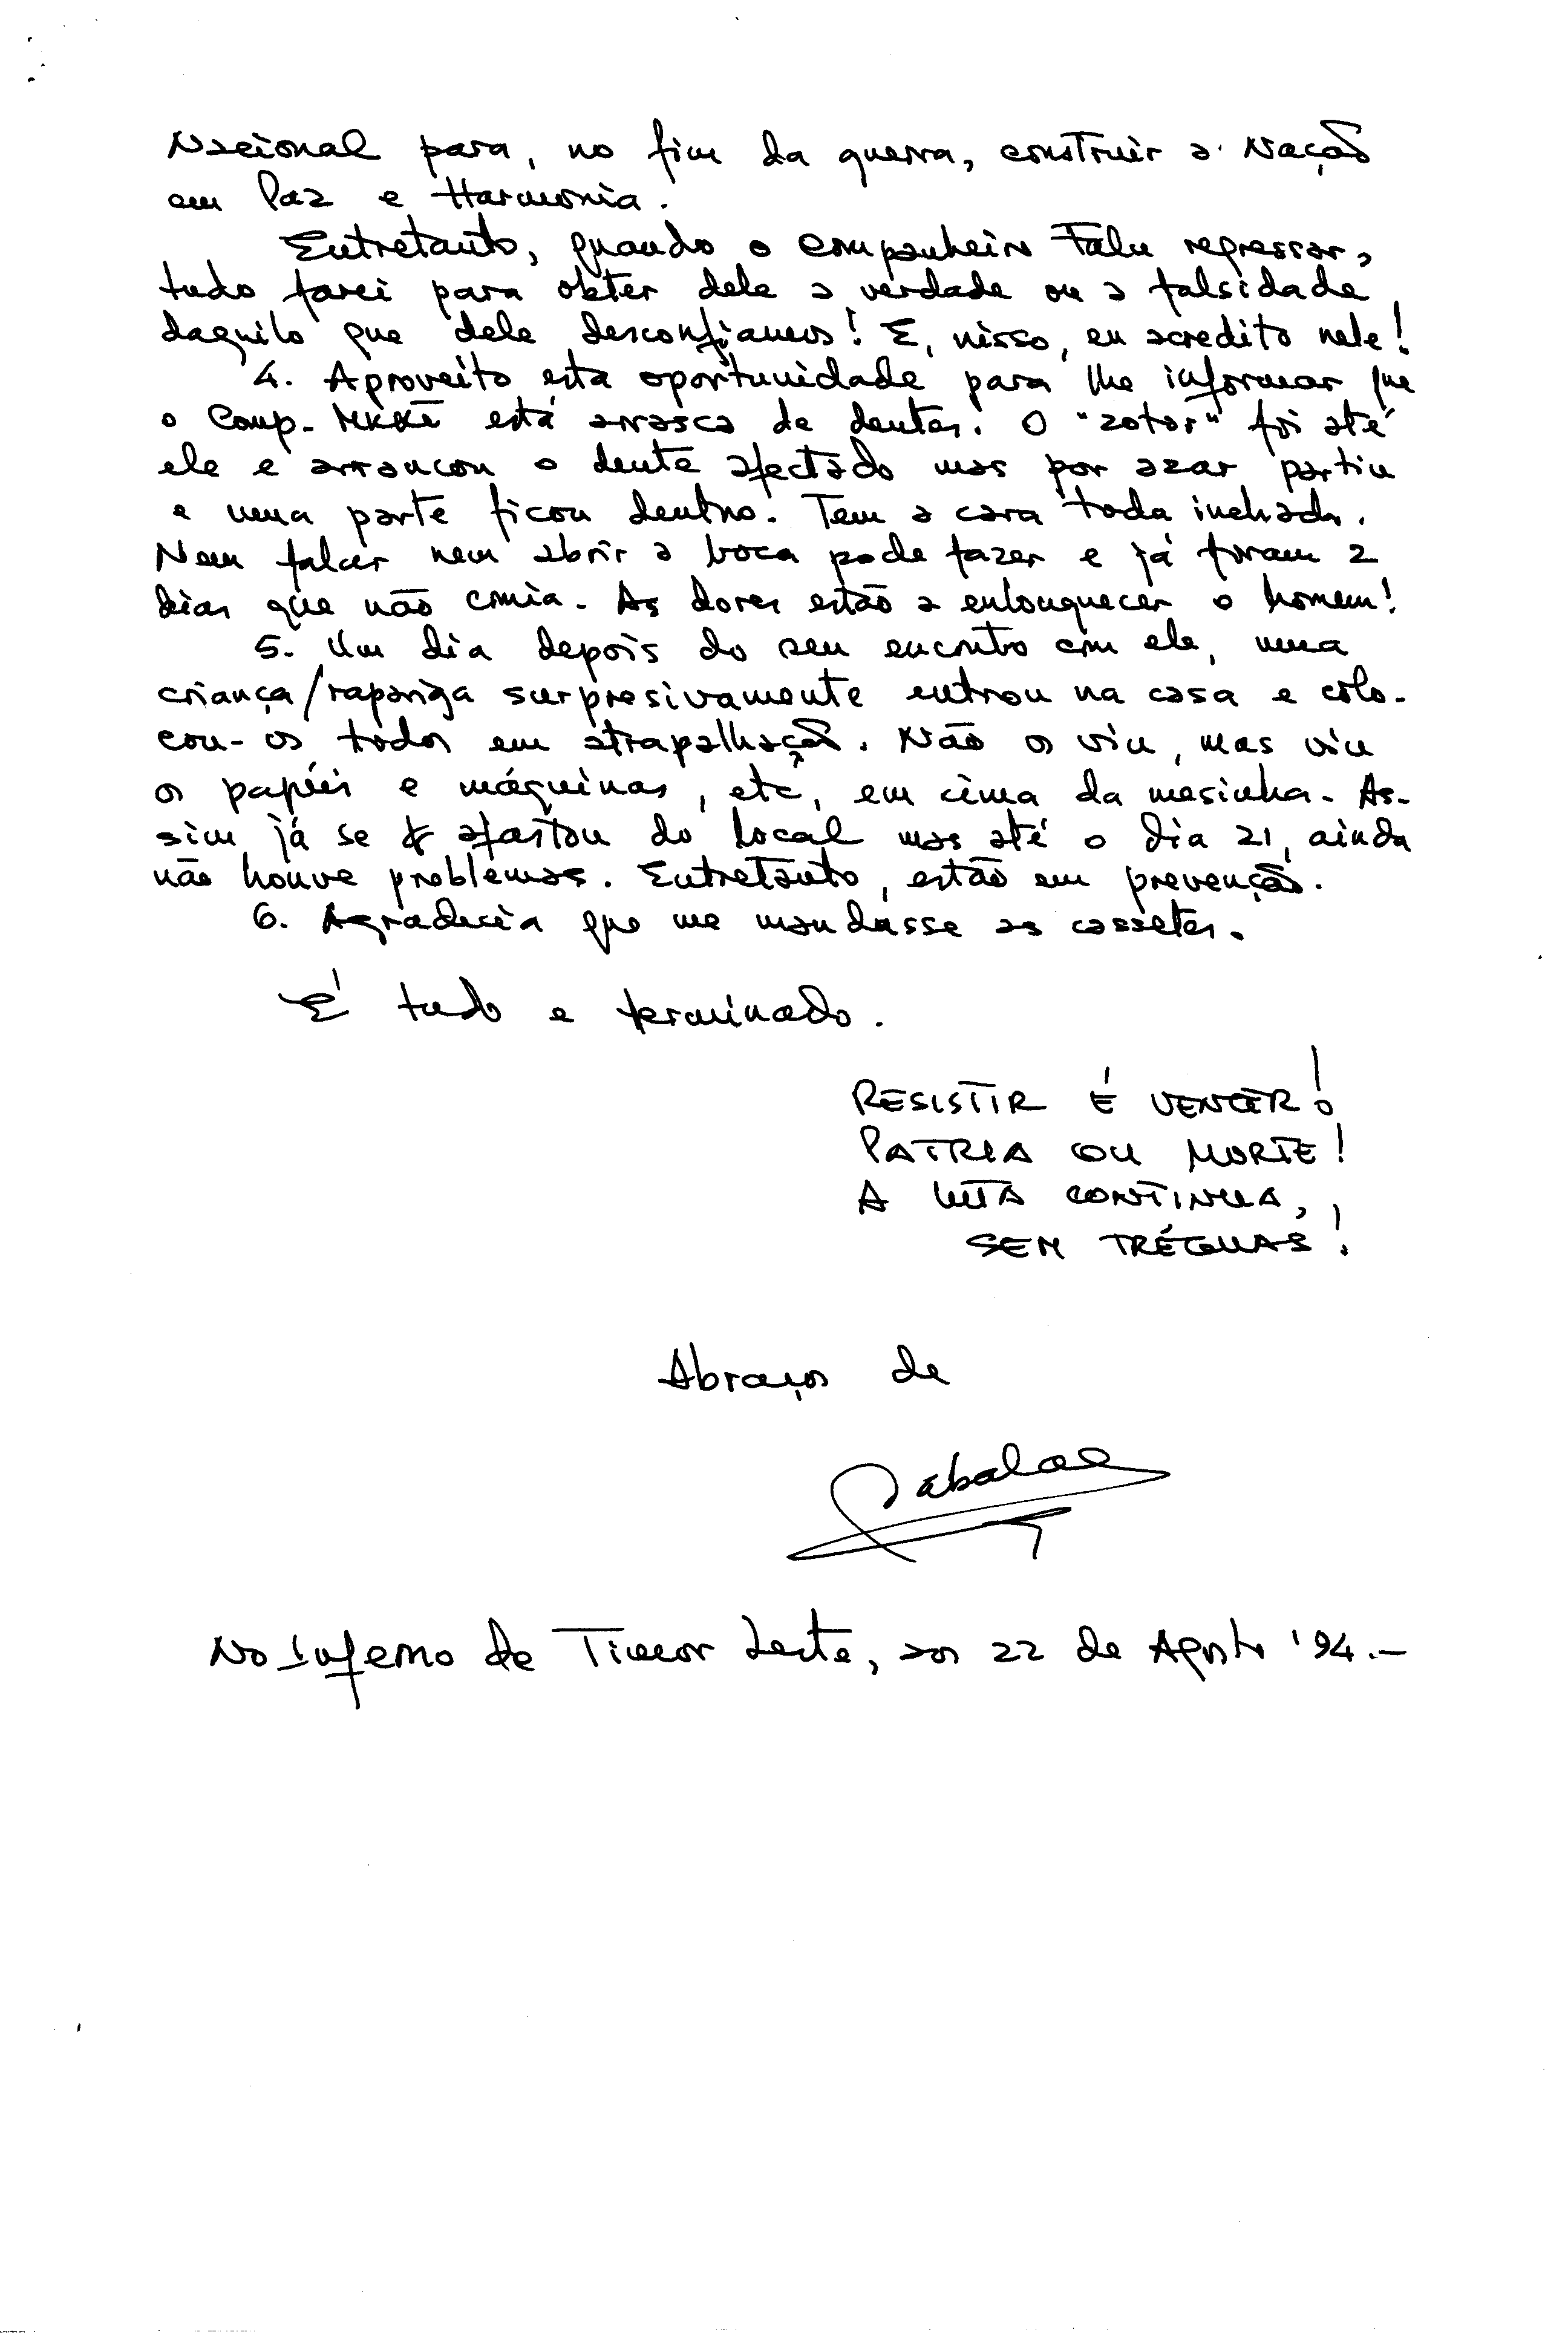 Nacional para, no fim da guerra, construir a Nação
em Paz e Harmonia.
Entretanto, quando o companheiro Falu regressar,
tudo farei para obter dele a verdade ou a falsidade
daquilo que dele desconfiamos! E, nisso, eu acredito nele!
4. Aproveito esta oportunidade para lhe informar que
o Comp. está arrasca de dentes. O "zotor" foi até
ele e arrancou o dente afectado mas por azar, partiu
e uma parte ficou dentro. Tem a cara toda inchada.
Nem falar nem abrir a boca pode fazer e já foram 2
dias que não comia. As dores estão a enlouquecer o homem!
5. Um dia depois do seu encontro com ele, uma
criança/rapariga surpresivamente entrou na casa e colo-
cou-os todos em atrapalhação. Não os viu, mas viu
os papéis e máquinas, etc, em cima da mesinha. As-
sim, já se afastou do local mas até o dia 21, ainda
não houve problemas. Entretanto, estão em prevenção.
6. Agradecia que me mandasse as cassetes.
É tudo e terminado.
RESISTIR É VENCER!
PATRIA OU MORTE!
A LUTA CONTINUA,
SEM TRÉGUAS!
Abraços de
Sabalae
No Inferno de Timor Leste, aos 22 de Agosto '94.-